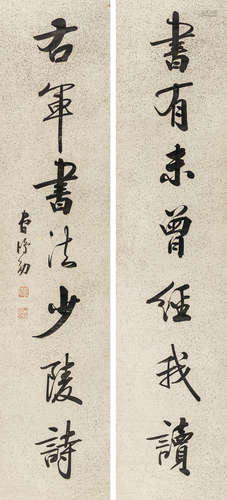 書有未曾經我讀
右軍書法少陵詩